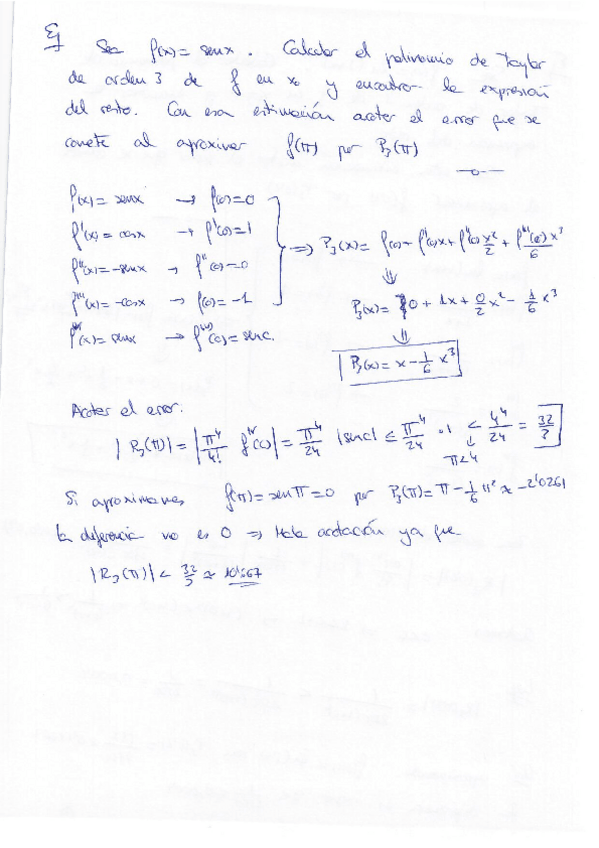 Ej Sea f(x)= senx. Calcular el polinomio de Taylor
de orden 3 de f en x₀ y encontrar la expresión
del resto. Con esa estimación acotar el error que se
comete al aproximar f(π) por P₃(π)
f(x)= senx → f(0)=0
f'(x)= cosx → f'(0)=1
f''(x)=-senx → f''(0)=0
f'''(x)=-cosx → f(0)=-1
f^IV(x)= senx → f^IV(c)= senc.
⇒ P₃(x)= f(0)+f'(0)x+f''(0)x²/2 + f'''(0)x³/6
⇓
P₃(x)= 0+1x+0/2 x²-1/6 x³
⇓
P₃(x)= x-1/6 x³
Acotar el error.
|R₃(π)|=|π⁴/4! f^IV(c)|=π⁴/24 |senc| ≤ π⁴/24 ·1 < 4⁴/24 = 32/3
↓
π<4
Si aproximamos f(π)=senπ=0 por P₃(π)=π-1/6 π³ ≈ -2'0261
la diferencia no es 0 ⇒ Mala acotación ya que
|R₃(π)| < 32/3 ≈ 10'667